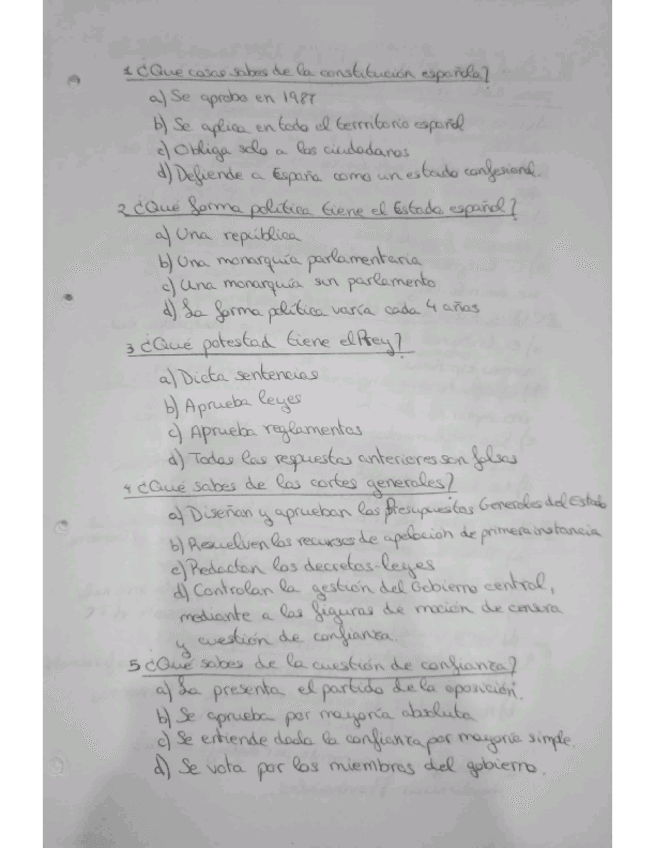 1 ¿Qué cosas sabes de la constitución española?
a) Se aprobo en 1987
b) Se aplica en todo el territorio español
c) Obliga solo a los ciudadanos
d) Defiende a España como un estado confesional.
2 ¿Qué forma política tiene el Estado español?
a) Una república
b) Una monarquía parlamentaria
c) Una monarquía sin parlamento
d) La forma política varía cada 4 años
3 ¿Qué potestad tiene el Rey?
a) Dicta sentencias
b) Aprueba leyes
c) Aprueba reglamentos
d) Todas las respuestas anteriores son falsas
4 ¿Qué sabes de las cortes generales?
a) Diseñan y aprueban los Presupuestos Generales del Estado
b) Resuelven los recursos de apelación de primera instancia
c) Redactan los decretos-leyes
d) Controlan la gestión del Gobierno central,
mediante a las figuras de moción de censura
y cuestión de confianza.
5 ¿Qué sabes de la cuestión de confianza?
a) La presenta el partido de la oposición.
b) Se aprueba por mayoría absoluta
c) Se entiende dada la confianza por mayoría simple.
d) Se vota por los miembros del gobierno.